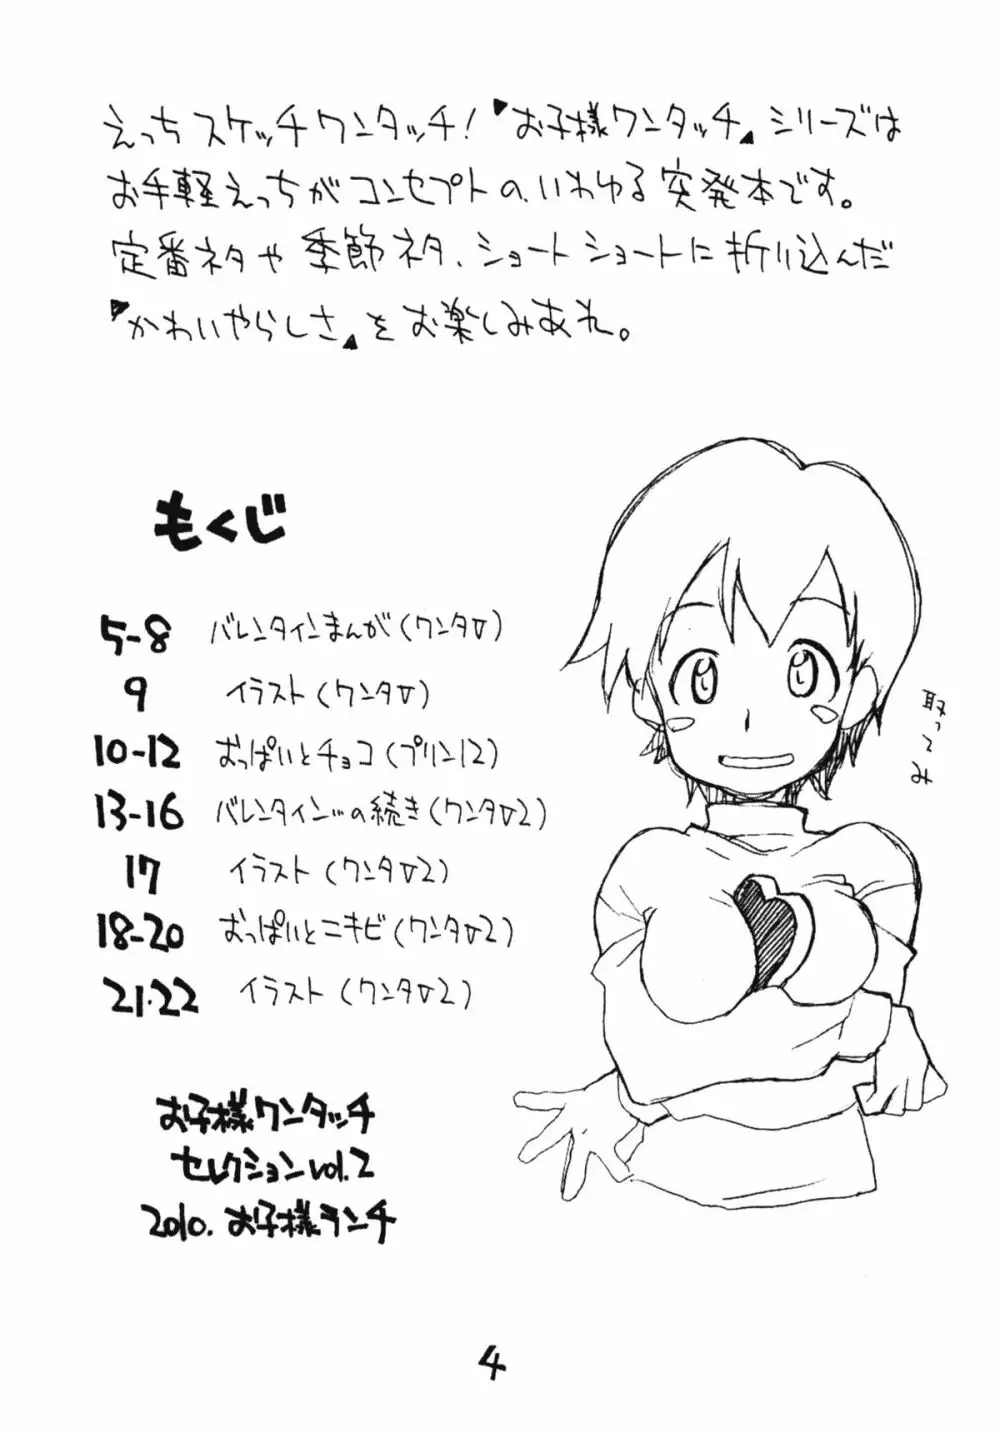 えっちスケッチワンタッチ！『お子様ワンタッチ』シリーズは
お手軽えっちがコンセプトの、いわゆる突発本です。
定番ネタや季節ネタ、ショートショートに折り込んだ
『かわいやらしさ』をお楽しみあれ。
もくじ
5-8 バレンタインまんが(ワンタ▽)
9 イラスト(ワンタ▽)
10-12 おっぱいとチョコ(プリン12)
13-16 バレンタイン…の続き(ワンタ▽2)
17 イラスト(ワンタ▽2)
18-20 おっぱいとニキビ(ワンタ▽2)
21・22 イラスト(ワンタ▽2)
取ってみ
お子様ワンタッチ
セレクションvol.2
2010. お子様ランチ
4